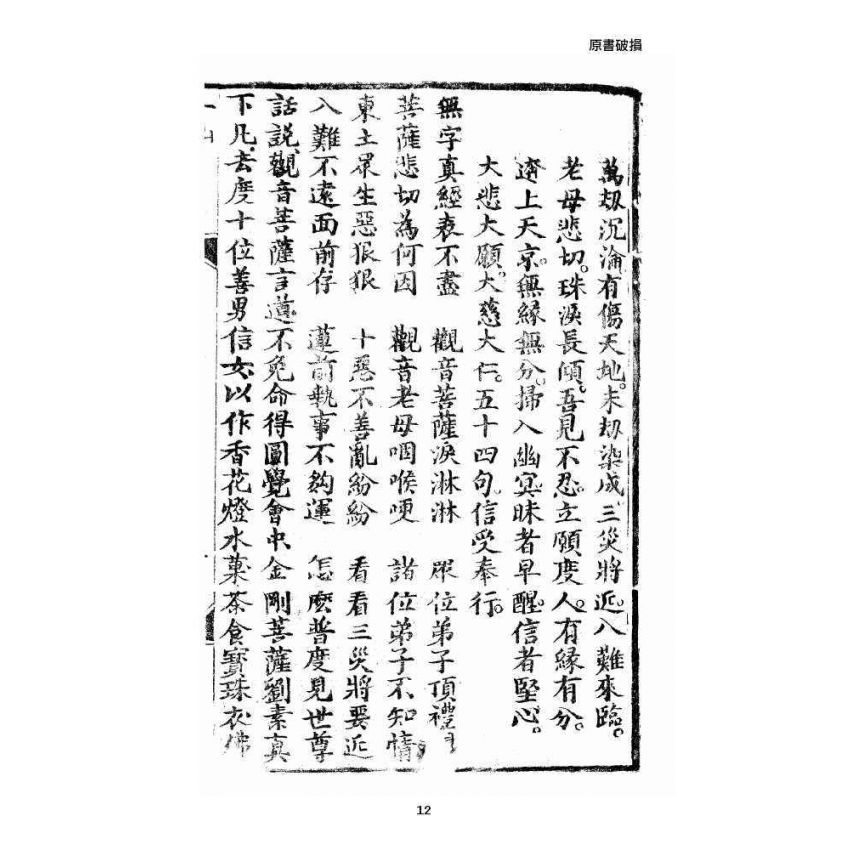 原書破損
萬刼沉淪有傷天地。末刼染成三災將近。八難來臨。
老母悲切。珠淚長傾。吾見不忍。立願度人。有緣有分。
擠上天京。無緣無分。掃入幽冥。昧者早醒。信者堅心。
大悲大願。大慈大仁。五十四句。信受奉行。
無字真經表不盡 觀音菩薩淚淋淋 眾位弟子頂禮
菩薩悲切為何因 觀音老母咽喉哽 諸位弟子不知情
東土眾生惡狠狠 十惡不善亂紛紛 看看三災將要近
八難不遠面前存 蓮前執事不夠運 怎麼普度見世尊
話說、觀音菩薩言道、不免命得圓覺會中、金剛菩薩劉素真
下凡、去度十位善男信女、以作香花燈水菓茶食寶珠衣佛
12